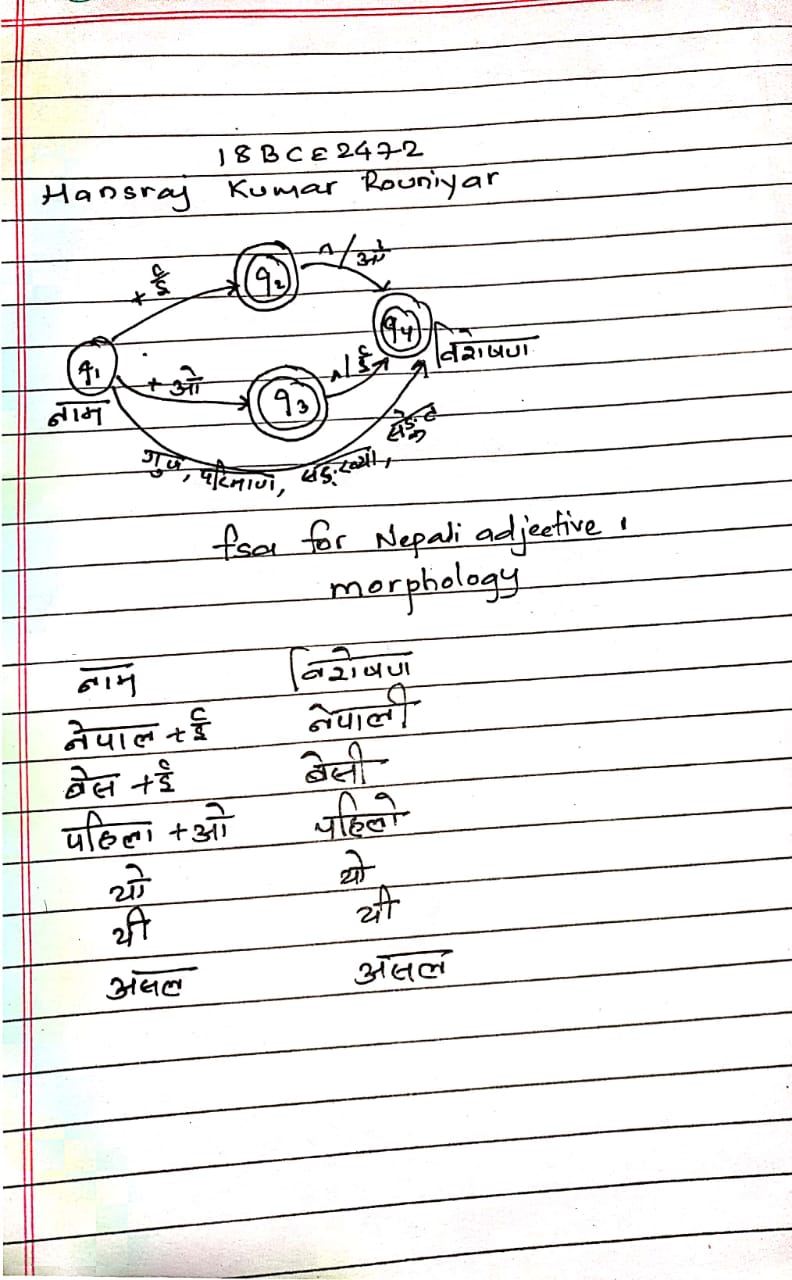 18BCE2472
Hansraj Kumar Rouniyar
+ ई
q2
^/ओ
q4
विशेषण
q1
नाम
+ ओ
q3
^/ई
गुण, परिमाण, सङ्ख्या,
fsa for Nepali adjective
morphology
नाम विशेषण
नेपाल +ई नेपाली
बेस +ई बेसी
पहिला +ओ पहिलो
यो यो
यी यी
असल असल